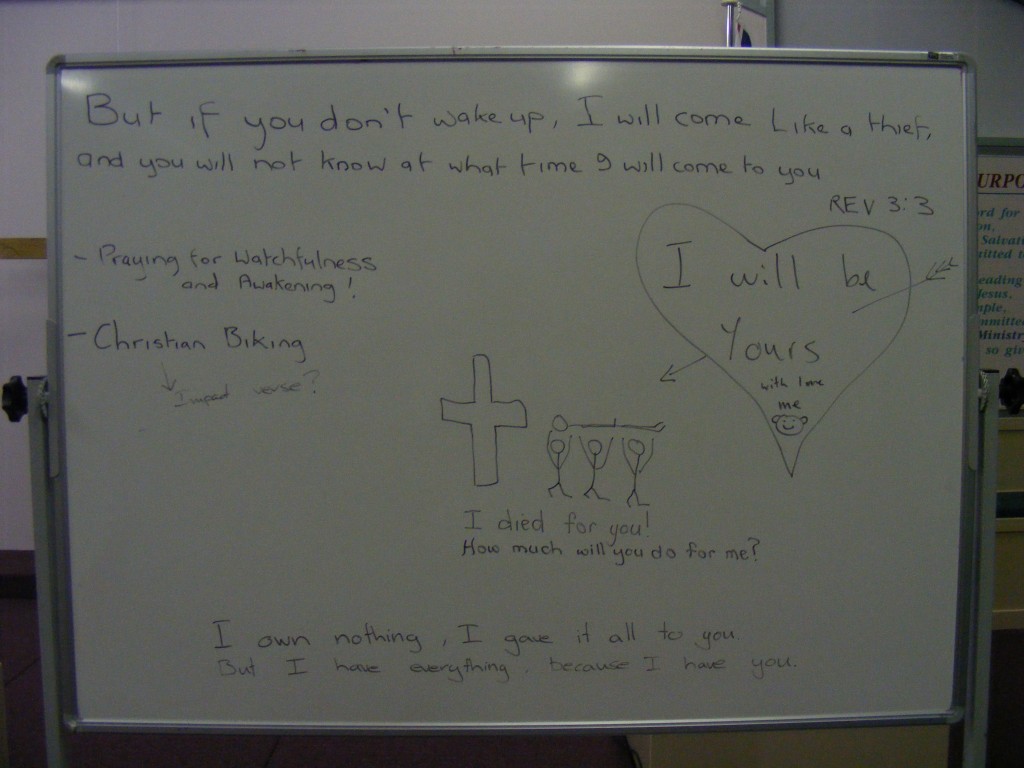 But if you don't wake up, I will come Like a thief,
and you will not know at what time I will come to you
REV 3:3
- Praying for Watchfulness
and Awakening!
- Christian Biking
Impact verse?
I will be
Yours
with love
me
I died for you!
How much will you do for me?
I own nothing, I gave it all to you.
But I have everything, because I have you.
URPO
rd for
on,
Salvat
itted t
eading
Jesus,
mple,
mmitte
Ministry
so giv